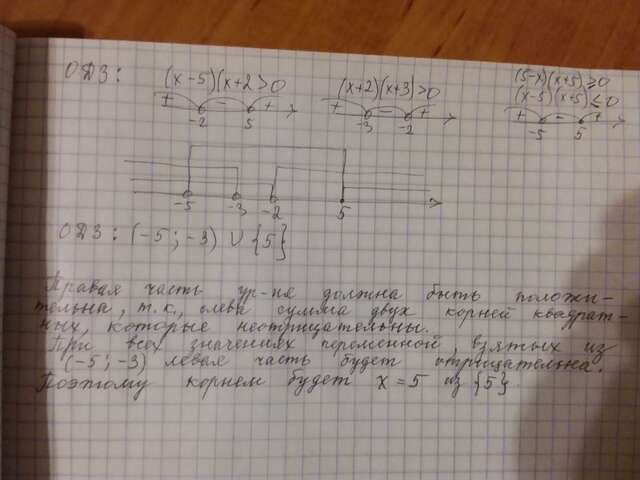 ОДЗ:
(x-5)(x+2>0 (x+2)(x+3)>0 (5-x)(x+5)≥0
(x-5)(x+5)≤0
+ - + + - + + - +
-2 5 -3 -2 -5 5
-5 -3 -2 5
ОДЗ: (-5; -3) ∪ {5}
Правая часть ур-ия должна быть положи-
тельна, т.к., слева сумма двух корней квадрат-
ных, которые неотрицательны.
При всех значениях переменной, взятых из
(-5; -3) левая часть будет отрицательна.
Поэтому корнем будет x=5 из {5}.